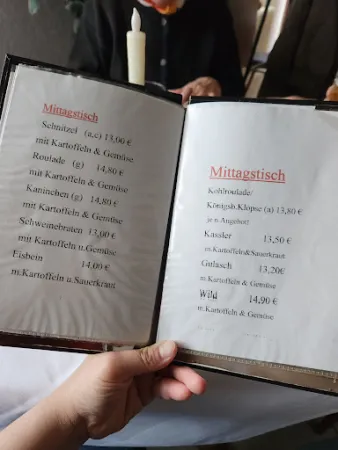 Mittagstisch
Schnitzel (a,c) 13,00 €
mit Kartoffeln & Gemüse
Roulade (g) 14,80 €
mit Kartoffeln & Gemüse
Kaninchen (g) 14,80 €
mit Kartoffeln & Gemüse
Schweinebraten 13,00 €
mit Kartoffeln u.Gemüse
Eisbein 14,00 €
m.Kartoffeln u.Sauerkraut
Mittagstisch
Kohlroulade/
Königsb.Klopse (a) 13,80 €
je n.Angebot/
Kassler 13,50 €
m.Kartoffeln&Sauerkraut
Gulasch 13,20€
m.Kartoffeln & Gemüse
Wild 14,90 €
m.Kartoffeln & Gemüse